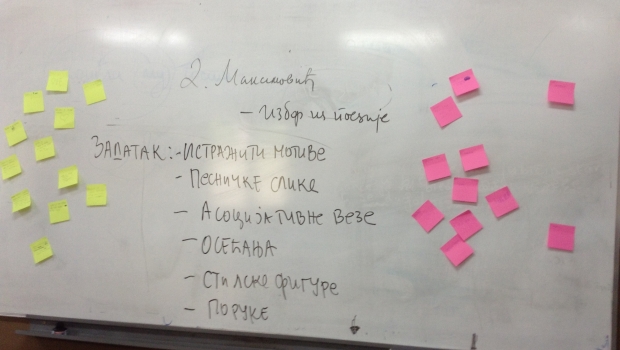 Д. Максимовић
- Избор из поезије
ЗАДАТАК: - ИСТРАЖИТИ МОТИВЕ
- ПЕСНИЧКЕ СЛИКЕ
- АСОЦИЈАТИВНЕ ВЕЗЕ
- ОСЕЋАЊА
- СТИЛСКЕ ФИГУРЕ
- ПОРУКЕ